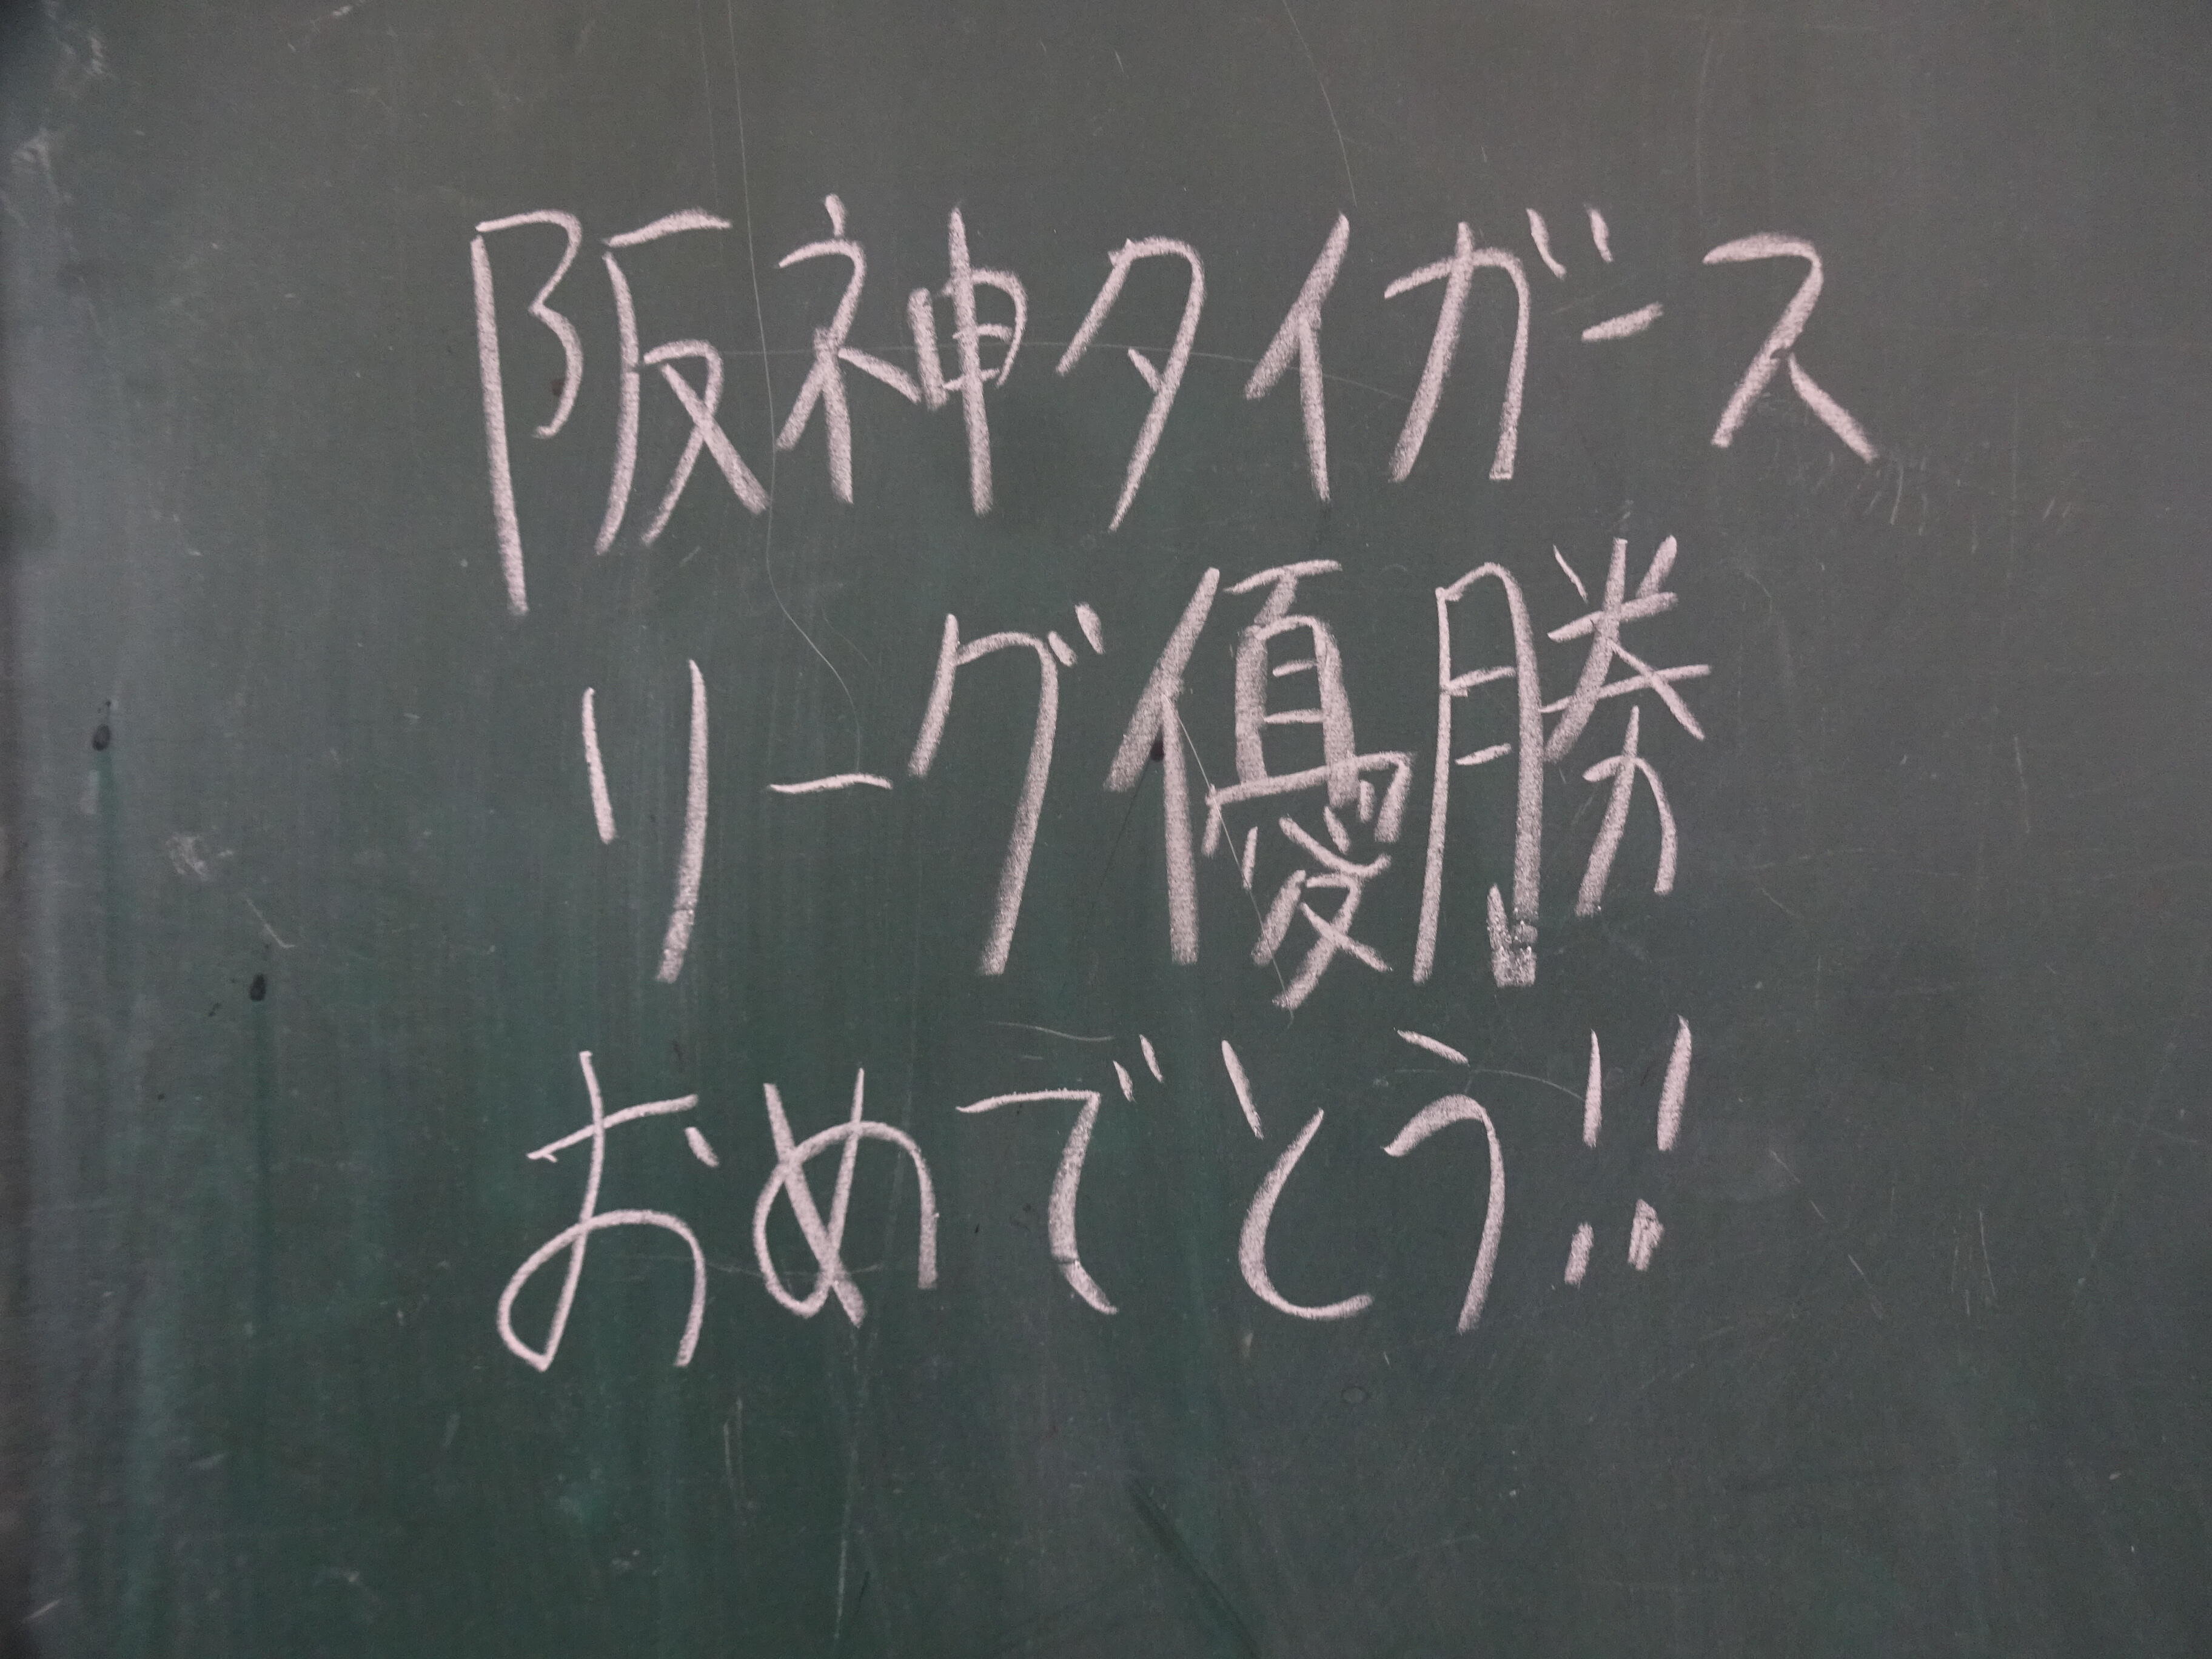 阪神タイガース
リーグ優勝
おめでとう!!